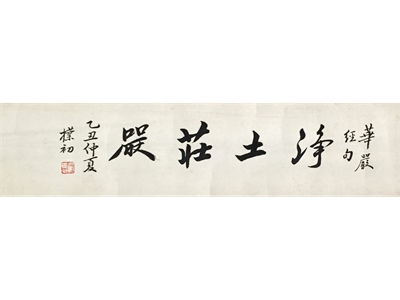 華嚴
經句
淨土莊嚴
乙丑仲夏
樸初